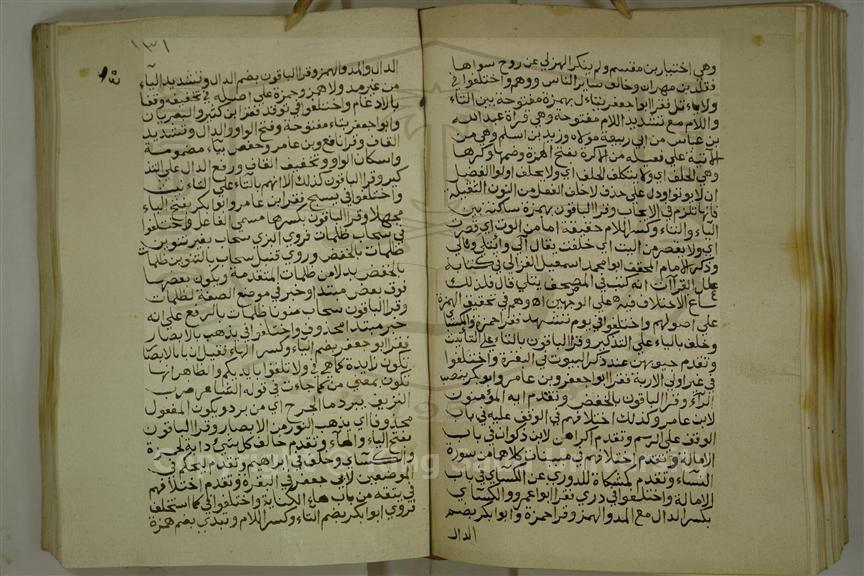 وهي اختيار بن مقسم ولم ينكر الهزلي عن روح سواها
فقلد بن مهران وخالف ساير الناس ووهم واختلفوا في
ولا ياتل فقرا ابو جعفر يتاءل بهمزة مفتوحة بين التاء
واللام مع تشديد اللام مفتوحة وهي قراة عبد الله
بن عياس من ابي ربيعة مولاه وزيد بن اسلم وهي من
الالية على فعيلة من الالوة بفتح الهمزة وضمها وكسرها
وهي الحلف اي ولا يتكلف الحلف اي ولا يحلف اولوا الفضل
ان لا يوتوا ودل على حذف لا خلو الفعل من النون الثقيلة
فانها تلزم في الايجاب وقرا الباقون بهمزة ساكنة بين
الياء والتاء وكسر اللام خفيفة اما من الوت اي قصرت
اي ولا يقصر من اليت اي حلفت يقال الى وائتلى وتالى
وذكر الامام المحقق ابو محمد اسمعيل القراب في كتابه
علل القراات انه كتب في المصحف يتلي قال فلذلك
ساغ الاختلاف فيه على الوجهين اه وهم في تخفيف الهمزة
على اصولهم واختلفوا في يوم تشهد فقرا حمزة والكساي
وخلف بالياء على التذكير وقرا الباقون بالتاء على التانيث
وتقدم جيوبهن عند ذكر البيوت في البقرة واختلفوا
في غير اولي الاربة فقرا ابو جعفر وبن عامر وابو بكر بنصب
الراء وقرا الباقون بالخفض وتقدم ايه المؤمنون
لابن عامر وكذلك اختلافهم في الوقف عليه في باب
الوقف على الرسم وتقدم اكراههن لابن ذكوان في باب
الامالة وتقدم اختلافهم في مبينات كلاهما من سورة
النساء وتقدم كمشكاة للدوري عن الكساي في باب
الامالة واختلفوا في دري فقرا ابو عمرو والكساي
بكسر الدال مع المد والهمز وقرا حمزة وابو بكر بضم
الدال
١٣١
الدال والمد والهمز وقرا الباقون بضم الدال وتشديد الياء
من غير مد ولا همز وحمزة على اصله في تخفيفه وقفا
بالادغام واختلفوا في توقد فقرا بن كثير والبصريان
وابو جعفر بتاء مفتوحة وفتح الواو والدال وتشديد
القاف وقرا نافع وبن عامر وحفص بياء مضمومة
واسكان الواو وتخفيف القاف ورفع الدال على التذ
كير وقرا الباقون كذلك الا انهم بالتاء على التانيث
واختلفوا في يسبح فقرا بن عامر وابو بكر بفتح الباء
مجهلا وقرا الباقون بكسرها مسمى الفاعل واختلفوا
في سحاب ظلمات فروي البزي سحاب بغير تنوين
ظلمات بالخفض وروي قنبل سحاب بالتنوين ظلمات
بالخفض بدلا من ظلمات المتقدمة ويكون بعضها
فوق بعض مبتدا وخبر في موضع الصفة لظلمات
وقرا الباقون سحاب منونا ظلمات بالرفع على انه
خبر مبتدا محذوف واختلفوا في يذهب بالابصار
فقرا ابو جعفر بضم الياء وكسر الهاء فقيل ان باء بالابصار
تكون زايدة كما هي في ولا تلقوا بايديكم والظاهر انها
تكون بمعنى من كما جاءت في قوله الشاعر شرب
النزيف ببرد ماء الحشرج اي من برد ويكون المفعول
محذوفا اي يذهب النور من الابصار وقرا الباقون
بفتح الياء والهاء وتقدم خالق كل شيء دابة لحمزة
والكساي وخلف في ابراهيم وتقدم ليحكم في
الموضعين لابي جعفر في البقرة وتقدم اختلافهم
في يتقه من باب هاء الكناية واختلفوا في كما استخلف
فروي ابو بكر بضم التاء وكسر اللام ويبتدي بضم همزة